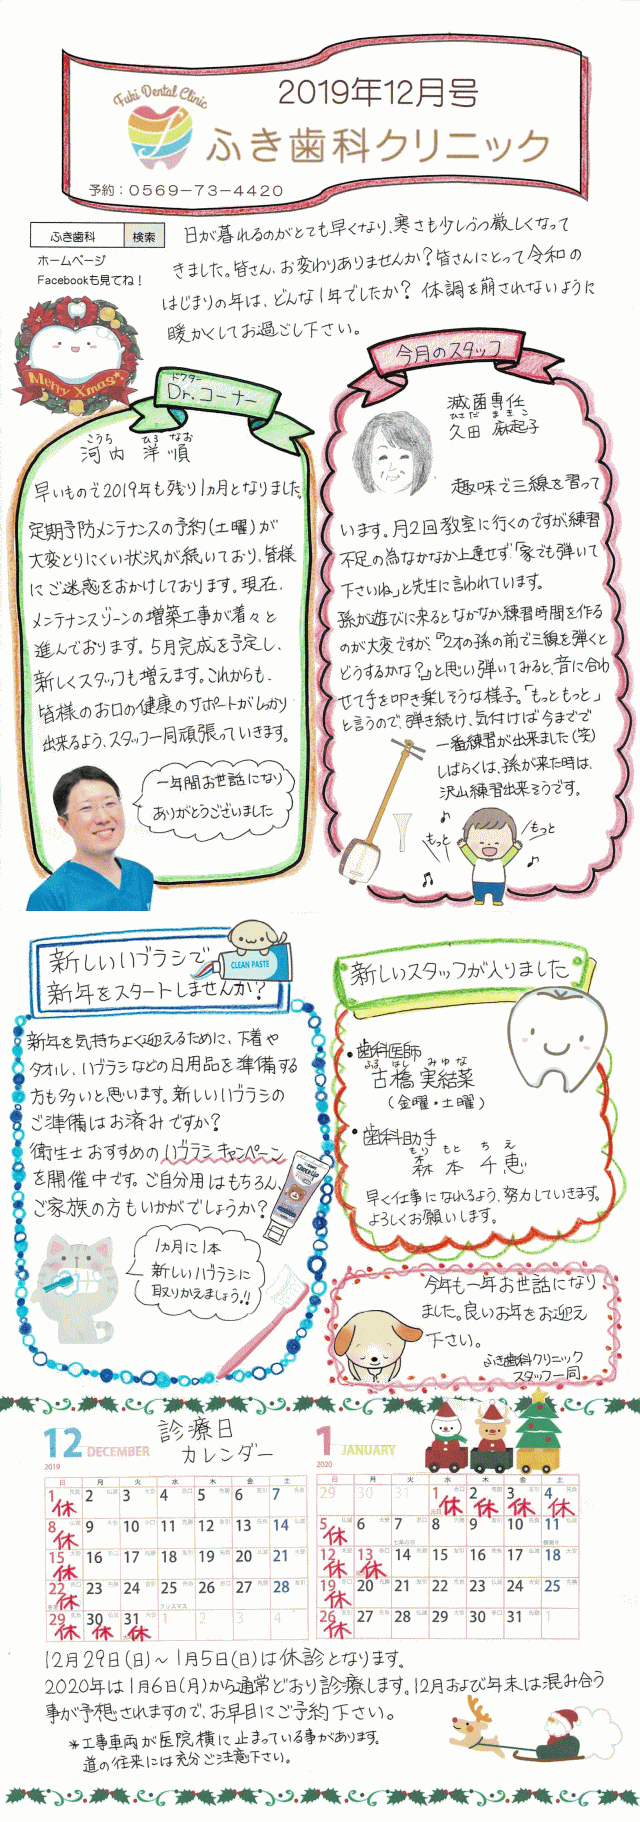 Fuki Dental Clinic
2019年12月号
ふき歯科クリニック
予約：0569-73-4420
ふき歯科 検索
ホームページ
Facebookも見てね！
日が暮れるのがとても早くなり、寒さも少しづつ厳しくなって
きました。皆さん、お変わりありませんか？皆さんにとって令和の
はじまりの年は、どんな1年でしたか？ 体調を崩されないように
暖かくしてお過ごし下さい。
Merry Xmas
ドクター
Dr.コーナー
こうち ひろ なお
河内 洋順
早いもので2019年も残り1ヵ月となりました。
定期予防メンテナンスの予約(土曜)が
大変とりにくい状況が続いており、皆様
にご迷惑をおかけしております。現在、
メンテナンスゾーンの増築工事が着々と
進んでおります。5月完成を予定し、
新しくスタッフも増えます。これからも、
皆様のお口の健康のサポートがしっかり
出来るよう、スタッフ一同頑張っていきます。
一年間お世話になり
ありがとうございました
今月のスタッフ
滅菌専任
ひさだ まきこ
久田 麻起子
趣味で三線を習って
います。月2回教室に行くのですが練習
不足の為なかなか上達せず「家でも弾いて
下さいね」と先生に言われています。
孫が遊びに来るとなかなか練習時間を作る
のが大変ですが、『2才の孫の前で三線を弾くと
どうするかな？』と思い弾いてみると、音に合わ
せて手を叩き楽しそうな様子。「もっともっと」
と言うので、弾き続け、気付けば今までで
一番練習が出来ました(笑)
しばらくは、孫が来た時は、
沢山練習出来そうです。
もっと
もっと
新しいハブラシで
新年をスタートしませんか？
CLEAN PASTE
新年を気持ちよく迎えるために、下着や
タオル、ハブラシなどの日用品を準備する
方も多いと思います。新しいハブラシの
ご準備はお済みですか？
衛生士おすすめのハブラシキャンペーン
を開催中です。ご自分用はもちろん、
ご家族の方もいかがでしょうか？
Check-Up
1ヵ月に1本
新しいハブラシに
取りかえましょう!!
新しいスタッフが入りました
・歯科医師
ふる はし みゆな
古橋 実結菜
(金曜・土曜)
・歯科助手
もり もと ちえ
森本 千恵
早く仕事になれるよう、努力していきます。
よろしくお願いします。
今年も一年お世話になり
ました。良いお年をお迎え
下さい。
ふき歯科クリニック
スタッフ一同
診療日
カレンダー
12 DECEMBER
2019
日 月 火 水 木 金 土
1 休 2 3 4 5 6 7
8 休 9 10 11 12 13 14
15 休 16 17 18 19 20 21
22 休 23 24 25 26 27 28
クリスマス
29 休 30 休 31 休 1 2 3 4
1 JANUARY
2020
日 月 火 水 木 金 土
29 30 31 1 休 2 休 3 休 4 休
5 休 6 7 8 9 10 11
12 休 13 休 14 15 16 17 18
19 休 20 21 22 23 24 25
26 休 27 28 29 30 31 1
12月29日(日)～1月5日(日)は休診となります。
2020年は1月6日(月)から通常どおり診療します。12月および年末は混み合う
事が予想されますので、お早目にご予約下さい。
*工事車両が医院横に止まっている事があります。
道の往来には充分ご注意下さい。